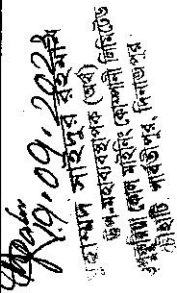 ১৭.০৭.২০২৪
মোহাম্মদ সাইদুর রহমান
উপ-মহাব্যবস্থাপক (অর্থ)
বড়পুকুরিয়া কোল মাইনিং কোম্পানী লিমিটেড
চৌহাটি পার্বতীপুর, দিনাজপুর